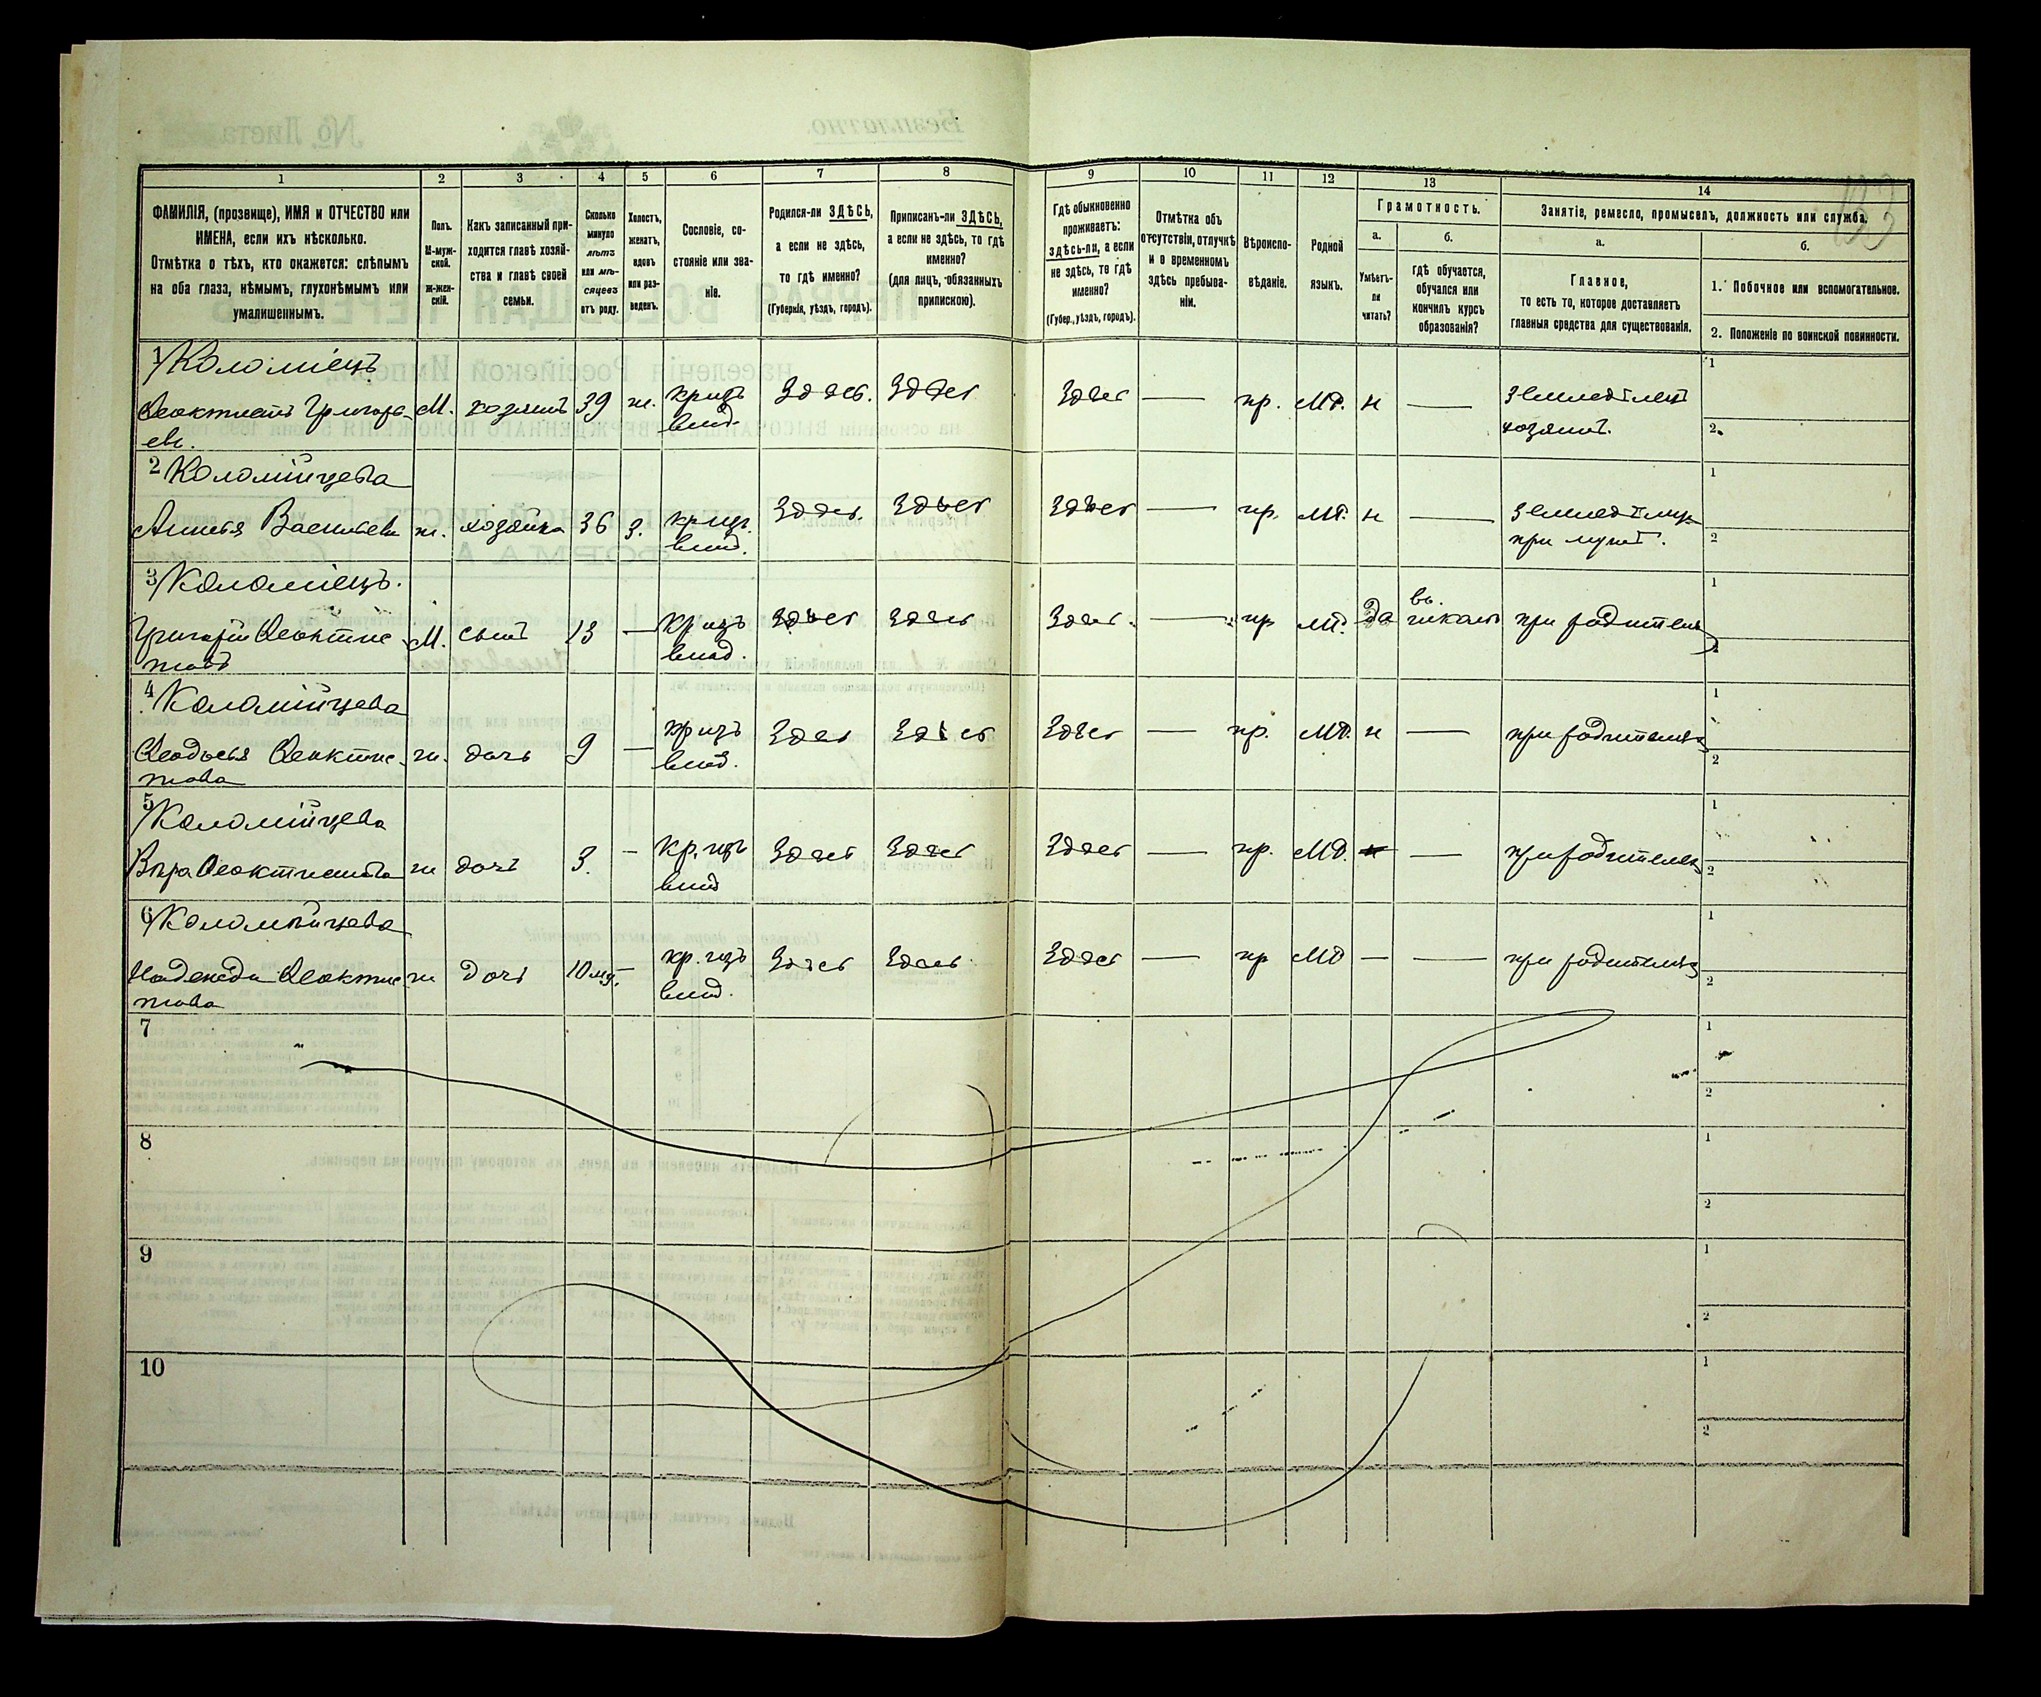 133
1 2 3 4 5 6 7 8 9 10 11 12 13 14
ФАМИЛІЯ, (прозвище), ИМЯ и ОТЧЕСТВО или
ИМЕНА, если ихъ нѣсколько.
Отмѣтка о тѣхъ, кто окажется: слѣпымъ
на оба глаза, нѣмымъ, глухонѣмымъ или
умалишеннымъ.
Полъ.
М-муж-
ской.
ж-жен-
скій.
Какъ записанный при-
ходится главѣ хозяй-
ства и главѣ своей
семьи.
Сколько
минуло
лѣтъ
или мѣ-
сяцевъ
отъ роду.
Холостъ,
женатъ,
вдовъ
или раз-
веденъ.
Сословіе, со-
стояніе или зва-
ніе.
Родился-ли ЗДѢСЬ,
а если не здѣсь,
то гдѣ именно?
(Губернія, уѣздъ, городъ).
Приписанъ-ли ЗДѢСЬ,
а если не здѣсь, то гдѣ
именно?
(для лицъ, обязанныхъ
припискою).
Гдѣ обыкновенно
проживаетъ:
здѣсь-ли, а если
не здѣсь, то гдѣ
именно?
(Губер., уѣздъ, городъ).
Отмѣтка объ
отсутствіи, отлучкѣ
и о временномъ
здѣсь пребыва-
ніи.
Вѣроиспо-
вѣданіе.
Родной
языкъ.
Грамотность.
а.
Умѣетъ-
ли
читать?
б.
гдѣ обучается,
обучался или
кончилъ курсъ
образованія?
Занятіе, ремесло, промыселъ, должность или служба.
а.
Главное,
то есть то, которое доставляетъ
главныя средства для существованія.
б.
1. Побочное или вспомогательное.
2. Положеніе по воинской повинности.
1 Коломіецъ
Ѳеоктистъ Григорь- М. хозяинъ 39 ж. кр. изъ Здѣсь. Здѣсь Здѣсь — пр. МР. н — земледѣлецъ 1
евъ. влад. хозяинъ. 2
2 Коломійцева
Васильева ж. хозяйка 36 з. кр. изъ Здѣсь Здѣсь Здѣсь — пр. МР. н — 1
влад. при мужѣ. 2
3 Коломіецъ.
Григорій Ѳеоктис- М. сынъ 13 — кр. изъ Здѣсь Здѣсь Здѣсь. — пр МР. да въ школѣ при родителяхъ 1
товъ влад. 2
4 Коломійцева
Ѳеодосья Ѳеоктис- ж. дочь 9 — кр изъ Здѣсь Здѣсь Здѣсь — пр. МР. н — при родителяхъ 1
това влад. 2
5 Коломійцева
Вѣра Ѳеоктистова ж дочь 3. — кр. изъ Здѣсь Здѣсь Здѣсь — пр. МР. — при родителяхъ 1
влад 2
6 Коломійцева
Надежда Ѳеоктис- ж дочь 10 мѣ. — кр. изъ Здѣсь Здѣсь Здѣсь — пр МР — — при родителяхъ 1
това влад. 2
7 1
2
8 1
2
9 1
2
10 1
2